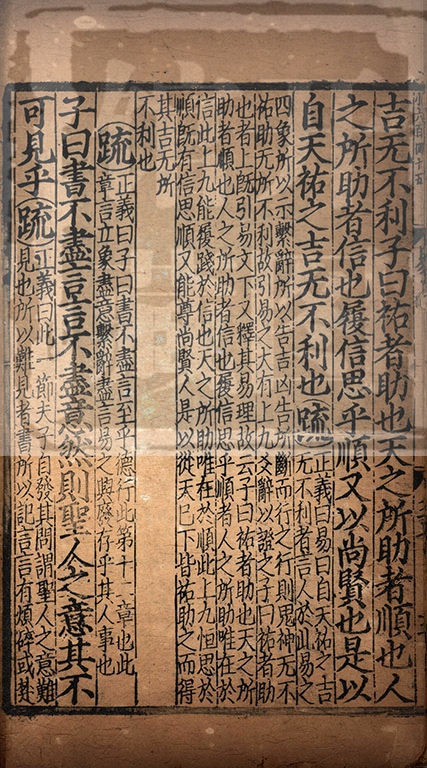 吉无不利子曰祐者助也天之所助者順也人
之所助者信也履信思乎順又以尚賢也是以
自天祐之吉无不利也疏正義曰易曰自天祐之吉
无不利者言人於此易之
四象所以示繫辭所以告吉凶告所斷而行之行則鬼神无不
祐助无所不利故引易之大有上九爻辭以證之子曰祐者助
也者上既引易文下又釋其易理故云子曰祐者助也天之所
助者順也人之所助者信也履信思乎順者人之所助唯在於
信此上九能履踐於信也天之所助唯在於順此上九恒思於
順既有信思順又能尊尚賢人是以從天已下皆祐助之而得
其吉无所
不利也
疏正義曰子曰書不盡言至乎德行此第十一章也此
章言立象盡意繫辭盡言易之興廢存乎其人事也
子曰書不盡言言不盡意然則聖人之意其不
可見乎疏正義曰此一節夫子自發其問謂聖人之意難
見也所以難見者書所以記言言有煩碎或楚